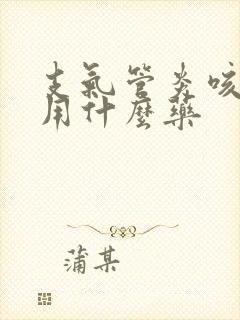 支氣管炎咳
用什麼藥
蒲某